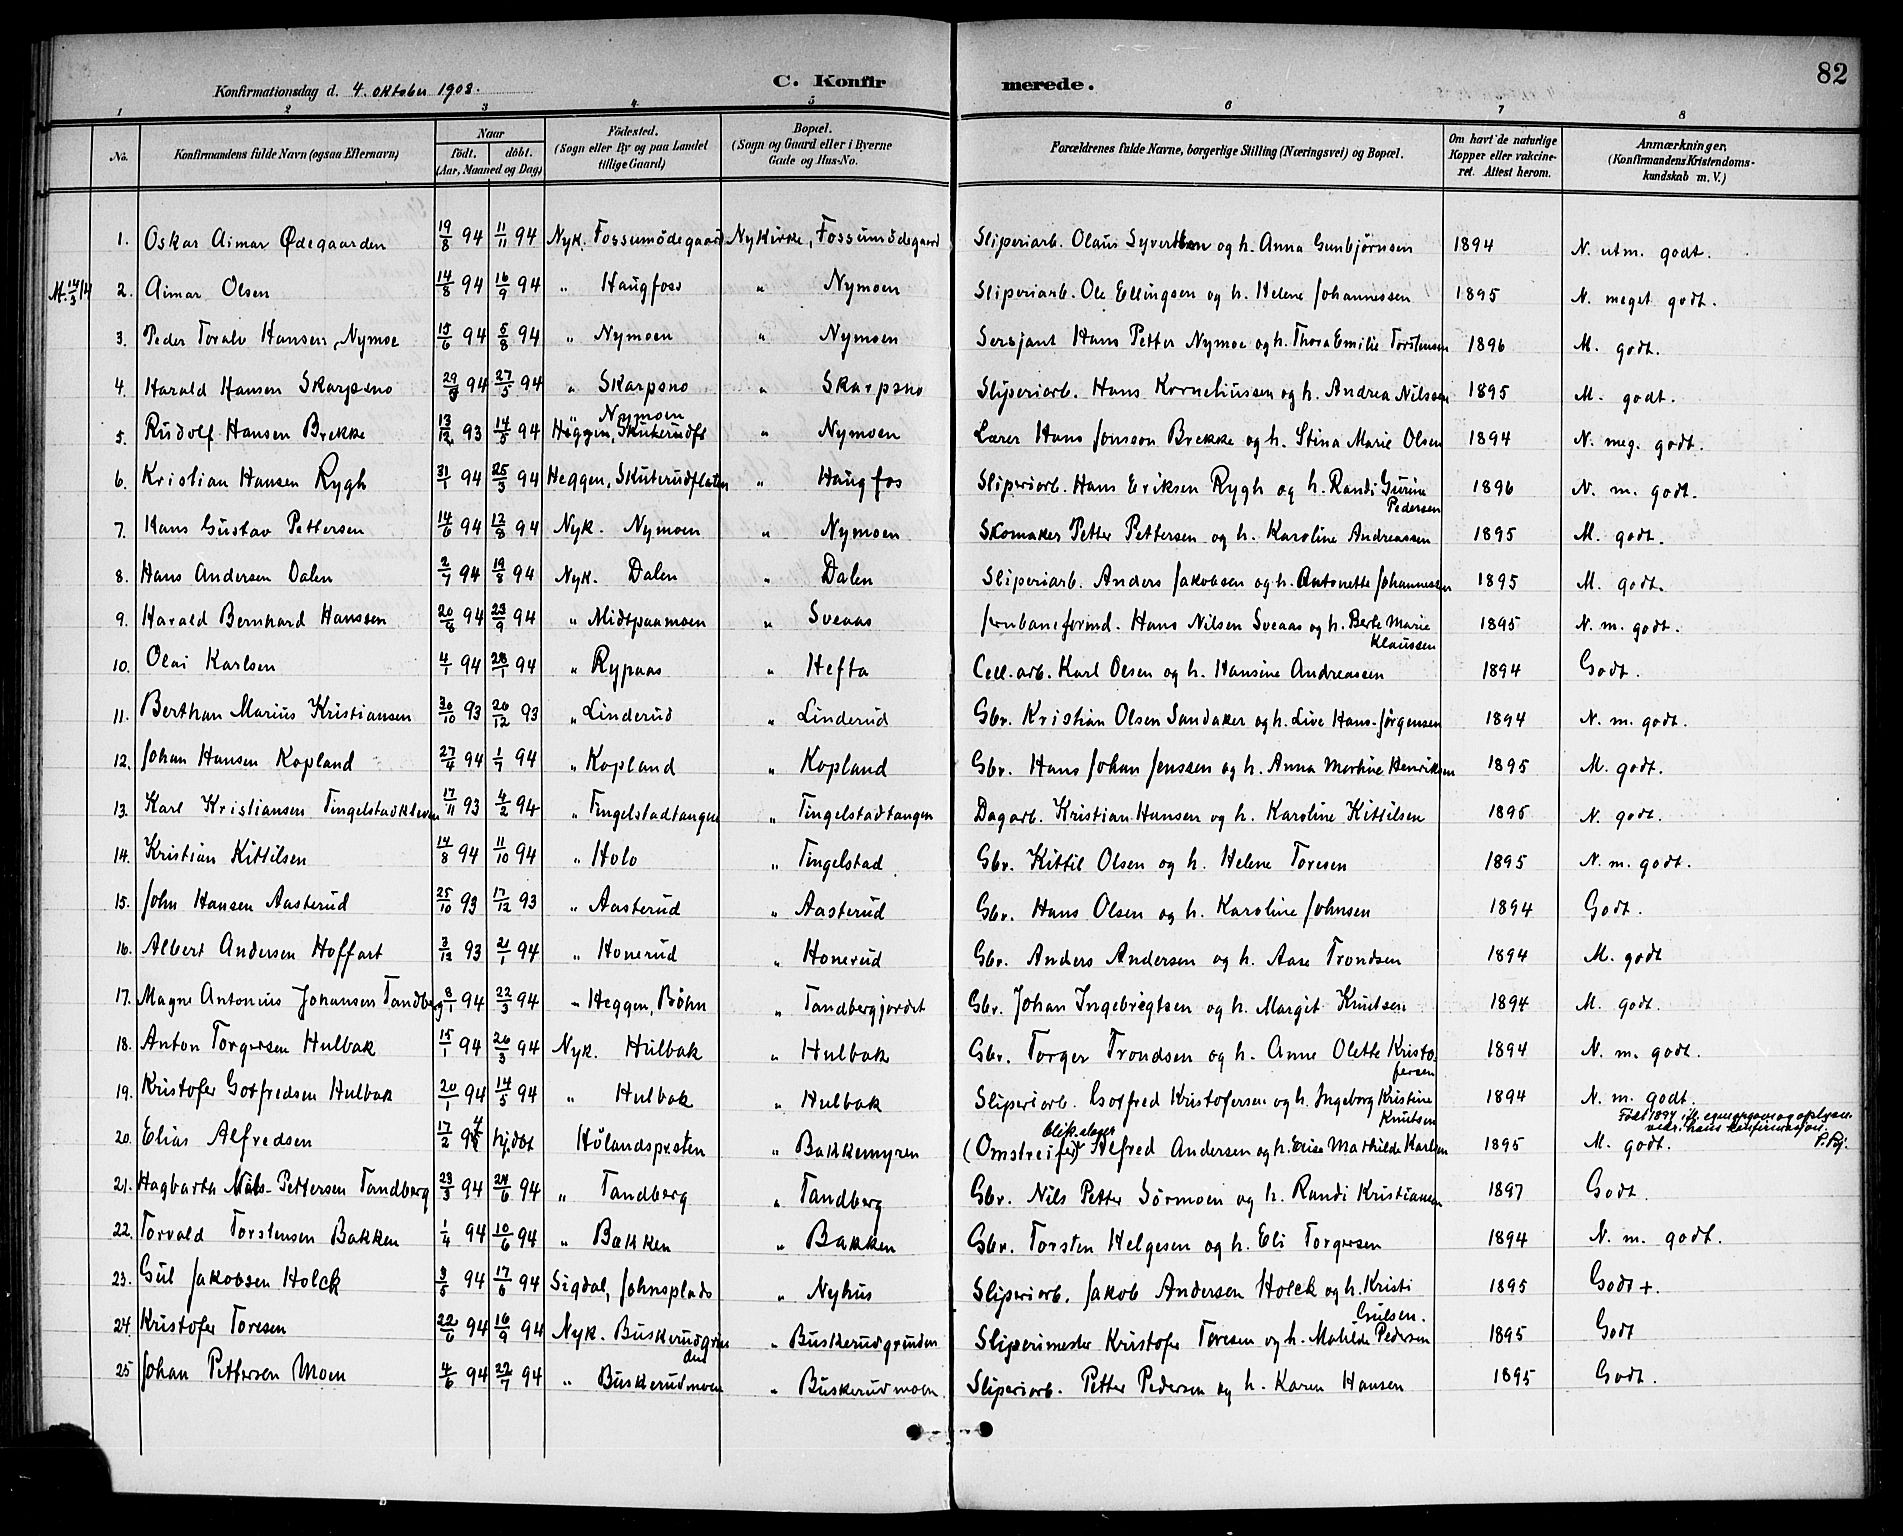 82
Konfirmationsdag d. 4. oktober 1908. C. Konfir merede.
1 2 3 4 5 6 7 8
No. Konfirmandens fulde Navn (ogsaa Efternavn) Naar födt. döbt. (Aar, Maaned og Dag) Födested. (Sogn eller By og paa Landet tillige Gaard) Bopæl. (Sogn og Gaard eller i Byerne Gade og Hus-No. Forældrenes fulde Navne, borgerlige Stilling (Næringsvei) og Bopæl. Om havt de naturlige Kopper eller vakcineret. Attest herom. Anmærkninger, (Konfirmandens Kristendomskundskab m. V.)
1. Oskar Aimar Ødegaarden 19/8 94 11/11 94 Nyk. Fossumödegaard Nykirke, Fossumödegaard Sliperiarb. Olaus Syvertsen og h. Anna Gunbjørnsen 1894 N. utm. godt.
2. Aimar Olsen 14/8 94 16/9 94 " Haugfoss " Nymoen Sliperiarb. Ole Ellingsen og h. Helene Johannessen 1895 N. meget godt.
3. Peder Toralv Hansen Nymoe 15/6 94 5/8 94 " Nymoen " Nymoen Sersjant Hans Petter Nymoe og h. Thora Emilie Torstensen 1896 M. godt.
4. Harald Hansen Skarpsno 94 27/5 94 " Skarpsno " Skarpsno Sliperiarb. Hans Korneliussen og h. Andrea Nilssen 1895 M. godt.
Nymoen
5. Rudolf Hansen Brekke 13/12 93 14/5 94 Heggen, " Nymoen Lærer Hans Jonsson Brekke og h. Stina Marie Olsen 1894 N. meg. godt.
6. Kristian Hansen Rygh 31/1 94 25/3 94 Heggen, Skuterudflaten " Haugfos Sliperiarb. Hans Eriksen Rygh og h. Randi Gurine Pedersen 1896 N. m. godt.
7. Hans Gustav Pettersen 14/6 94 12/8 94 Nyk. Nymoen " Nymoen Skomaker Petter Pettersen og h. Karoline Andreassen 1895 M. godt.
8. Hans Andersen Dalen 2/7 94 19/8 94 Nyk. Dalen " Dalen Sliperiarb. Anders Jakobsen og h. Antonette Johannessen 1895 M. godt.
9. Harald Bernhard Hanssen 20/8 94 23/9 94 " Midtpaamoen " Sveaas Jernbaneformd. Hans Nilsen Sveaas og h. Berte Marie Klaussen 1895 N. m. godt.
10. Olai Karlsen 4/1 94 28/1 94 " Rypaas " Hefta Cell. arb. Karl Olsen og h. Hansine Andreassen 1894 Godt.
11. Berthan Marius Kristiansen 30/10 93 20/12 93 " Linderud " Linderud Gbr. Kristian Olsen Sandaker og h. Live Hans-Jørgensen 1894 N. m. godt.
12. Johan Hansen Kopland 27/4 94 1/7 94 " Kopland " Kopland Gbr. Hans Johan Jenssen og h. Anna Martine Henriksen 1895 M. godt.
13. Karl Kristiansen Tingelstadkleven 17/11 93 4/2 94 " Tingelstadtangen " Tingelstadtangen Dagarb. Kristian Hansen og h. Karoline Kittilsen 1895 N. godt.
14. Kristian Kittilsen 14/8 94 11/10 94 " Holo " Tingelstad Gbr. Kittil Olsen og h. Helene Toresen 1895 N. m. godt.
15. John Hansen Aasterud 25/10 93 17/12 93 " Aasterud " Aasterud Gbr. Hans Olsen og h. Karoline Johnsen 1894 Godt.
16. Albert Andersen Hoffart 3/12 93 21/1 94 " Honerud " Honerud Gbr. Anders Andersen og h. Aase Trondsen 1894 M. godt
17. Magne Antonius Johansen Tandberg 8/1 94 22/3 94 " Heggen, Böhn " Tandbergjordet Gbr. Johan Ingebregtsen og h. Margit Knutsen 1894 M. godt.
18. Anton Torgersen Hulbak 15/1 94 26/3 94 Nyk. Hulbak " Hulbak Gbr. Torger Trondsen og h. Anne Olette Kristofersen 1894 N. m. godt.
19. Kristofer Gotfredsen Hulbak 20/1 94 14/5 94 " Hulbak " Hulbak Sliperiarb. Gotfred Kristofersen og h. Ingeborg Kristine Knutsen 1894 N. m. godt.
20. Elias Alfredsen 17/2 94 hj.döt Hölandsprsten " Bakkemyren (Omstreifer) blikslager Alfred Andersen og h. Elise Mathilde Karlsen 1895 M. godt.
21. Hagbarth Nils-Pettersen Tandberg 23/3 94 24/6 94 " Tandberg " Tandberg Gbr. Nils Petter Sörmoen og h. Randi Kristiansen 1897 Godt.
22. Torvald Torstensen Bakken 1/4 94 10/6 94 " Bakken " Bakken Gbr. Torsten Helgesen og h. Eli Torgersen 1894 N. m. godt.
23. Gul Jakobsen Holck 3/5 94 17/6 94 Sigdal, Johnsplads " Nyhus Sliperiarb. Jakob Andersen Holck og h. Kristi Gulsen. 1895 Godt +.
24. Kristofer Toresen 22/6 94 16/9 94 Nyk. Buskerudgrunden " Buskerudgrunden Sliperimester Kristofer Toresen og h. Matilde Pedersen 1895 Godt
25 Johan Pettersen Moen 4/6 94 22/7 94 " Buskerudmoen " Buskerudmoen. Sliperiarb. Petter Pedersen og h. Karen Hansen 1895 Godt.